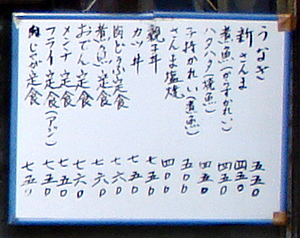 うなぎ 五五〇
新さんま 四五〇
煮魚(から子かれい) 四五〇
ハタハタ(焼魚) 四五〇
子持かれい(煮魚) 五〇〇
さんま塩焼 四〇〇
親子丼 七五〇
カツ丼 七五〇
肉どうふ定食 七六〇
煮魚定食 七六〇
おでん定食 七六〇
メンチ定食 七五〇
フライ定食(アジ) 七五〇
肉じゃが定食 七五〇